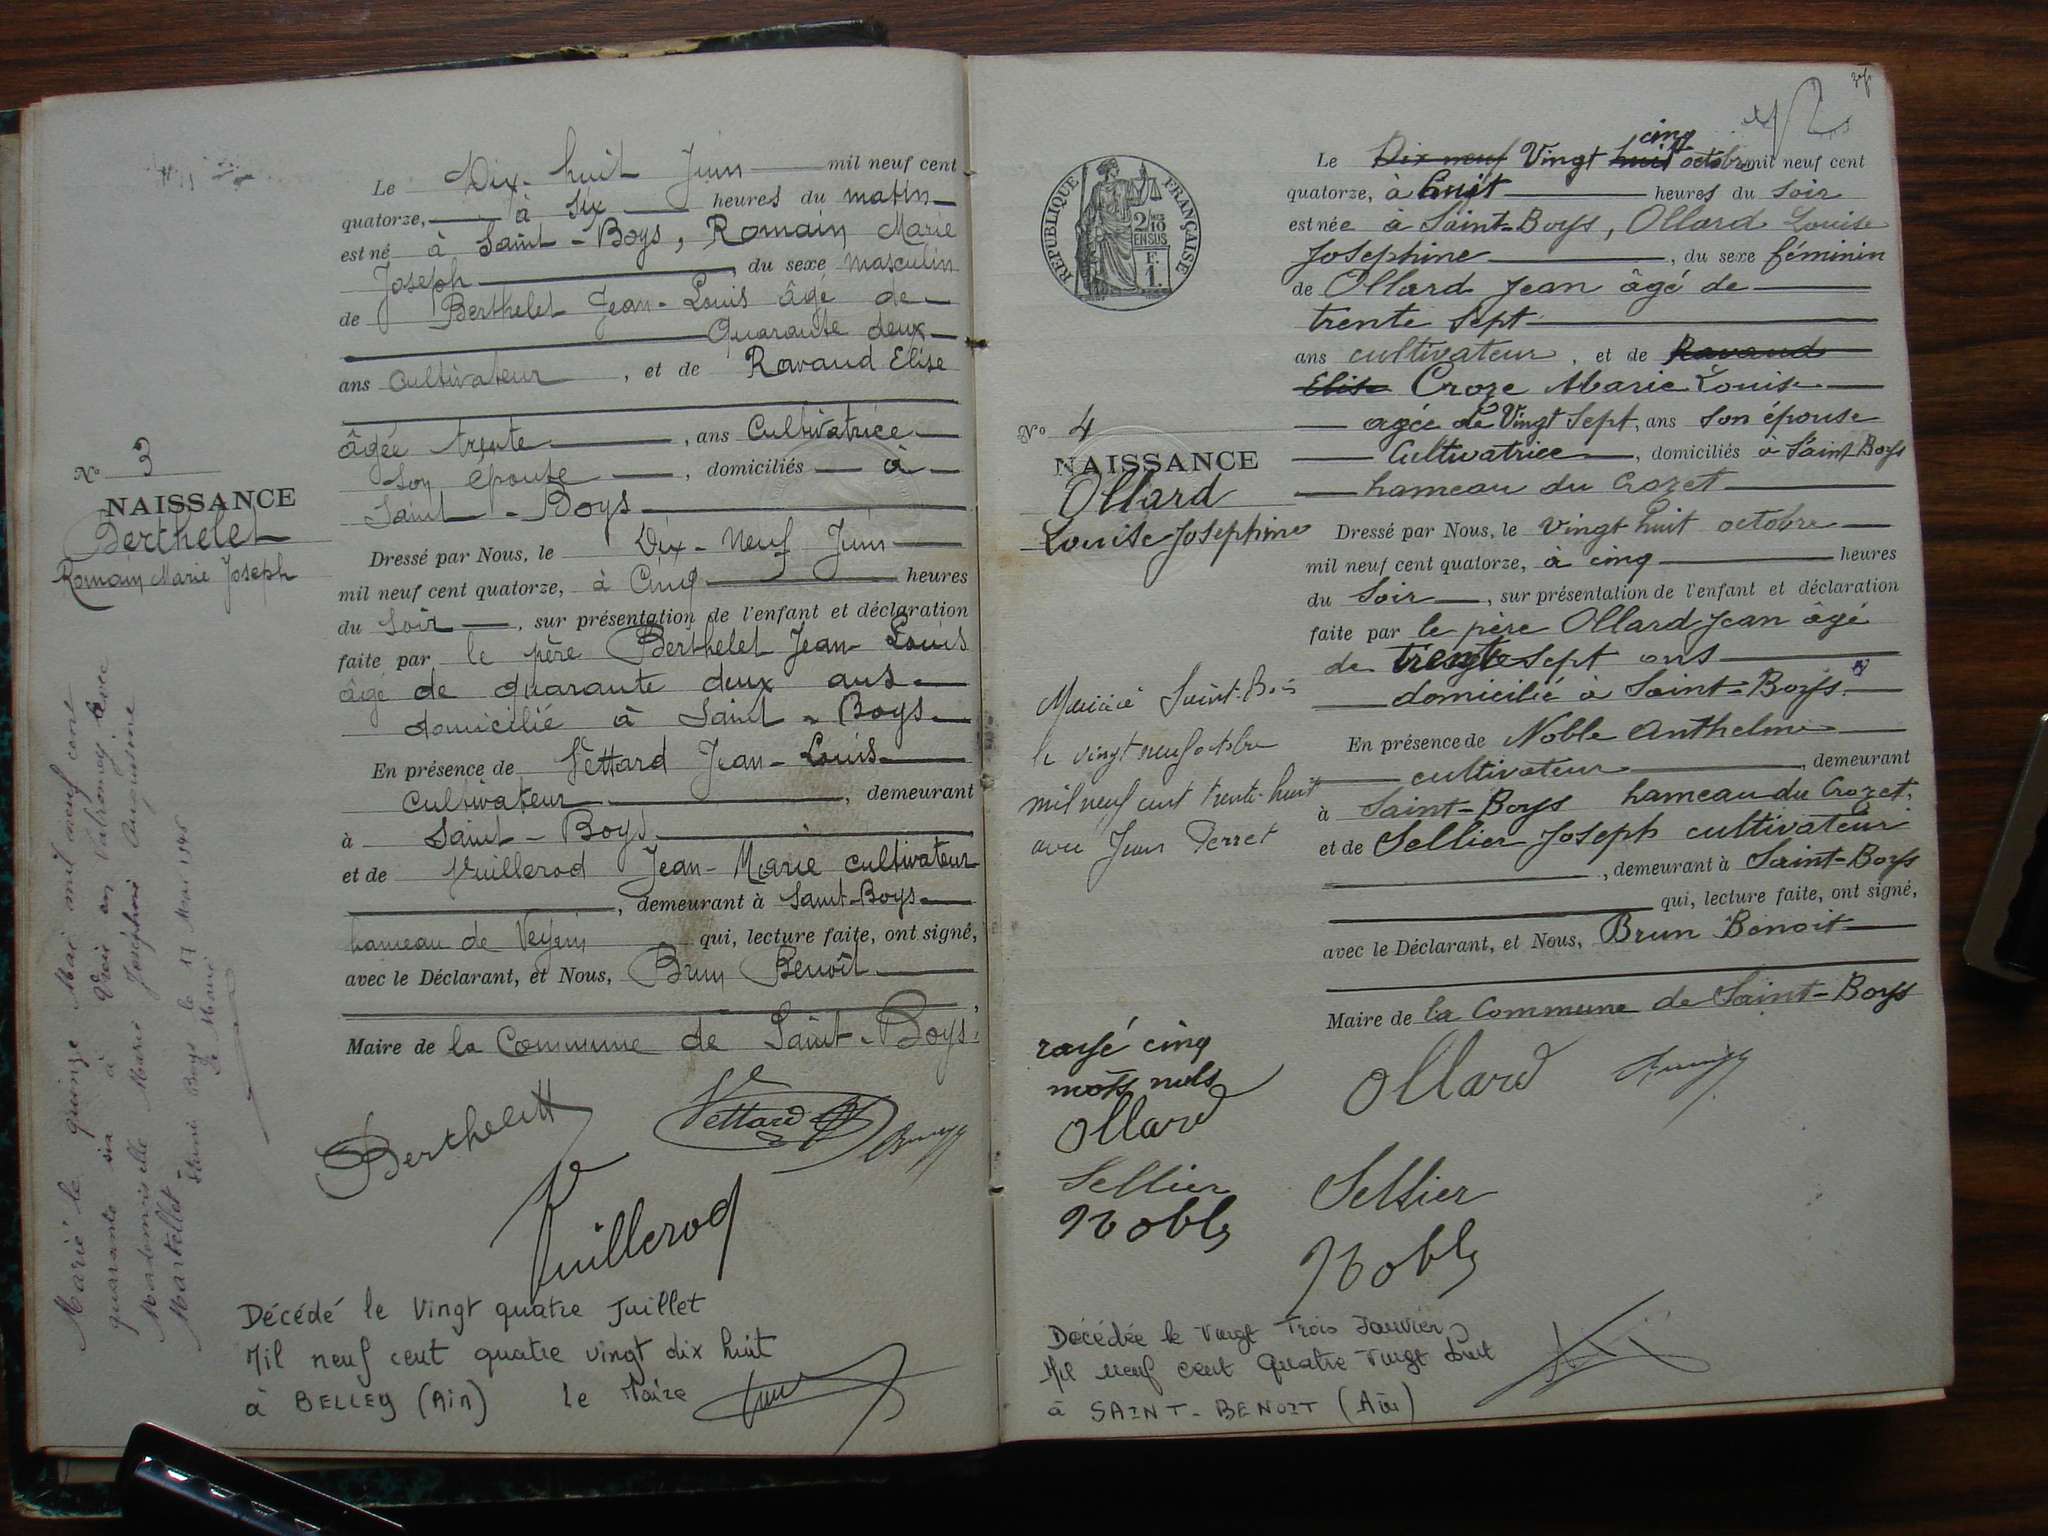 Le Dix-huit Juin mil neuf cent
quatorze, à six heures du matin
est né à Saint-Boys, Romain Marie
Joseph, du sexe masculin
de Berthelet Jean-Louis âgé de
Quarante deux
ans Cultivateur, et de Ravaud Elise
âgée trente, ans Cultivatrice
son épouse, domiciliés à
Saint-Boys
Dressé par Nous, le Dix-Neuf Juin
mil neuf cent quatorze, à Cinq heures
du soir, sur présentation de l'enfant et déclaration
faite par le père Berthelet Jean-Louis
âgé de quarante deux ans
domicilié à Saint-Boys
En présence de Vettard Jean-Louis
Cultivateur, demeurant
à Saint-Boys
et de Vuillerod Jean-Marie cultivateur
, demeurant à Saint-Boys
hameau de Veyrin qui, lecture faite, ont signé,
avec le Déclarant, et Nous, Brun Benoît
,
Maire de la Commune de Saint-Boys.
No 3
NAISSANCE
Berthelet
Romain Marie Joseph
Marié le quinze Mai mil neuf cent
quarante six à Virieu en Valromey avec
Mademoiselle Marie Joséphine Augustine
Martellet
Saint Boys le 17 Mai 1946
Le Maire
Berthelett
Vettard
Brun
Vuillerod
Décédé le Vingt quatre Juillet
Mil neuf cent quatre vingt dix huit
à BELLEY (Ain) le Maire
RÉPUBLIQUE FRANÇAISE
2/10
EN SUS
F.
1.
Le Dix neuf Vingt huit cinq octobre mil neuf cent
quatorze, à huit heures du soir
est née à Saint-Boys, Ollard Louise
Josephine, du sexe féminin
de Ollard Jean âgé de
trente sept
ans cultivateur, et de Ravaud
Elise Croze Marie Louise
agée de Vingt sept, ans son épouse
Cultivatrice, domiciliés à Saint Boys
hameau du Crozet
Dressé par Nous, le vingt huit octobre
mil neuf cent quatorze, à cinq heures
du soir, sur présentation de l'enfant et déclaration
faite par le père Ollard Jean âgé
de trente sept ans
domicilié à Saint-Boys.
En présence de Noble Anthelme
cultivateur, demeurant
à Saint-Boys hameau du Crozet,
et de Sellier Joseph cultivateur
, demeurant à Saint-Boys
qui, lecture faite, ont signé,
avec le Déclarant, et Nous, Brun Benoit
Maire de la Commune de Saint-Boys
No 4
NAISSANCE
Ollard
Louise Josephine
Mariée Saint-Bois
le vingt neuf octobre
mil neuf cent trente-huit
avec Jean Perret
rayé cinq
mots nuls
Ollard
Sellier
Noble
Ollard
Brun
Sellier
Noble
Décédée le Vingt Trois Janvier
Mil neuf cent Quatre Vingt huit
à SAINT-BENOIT (Ain)